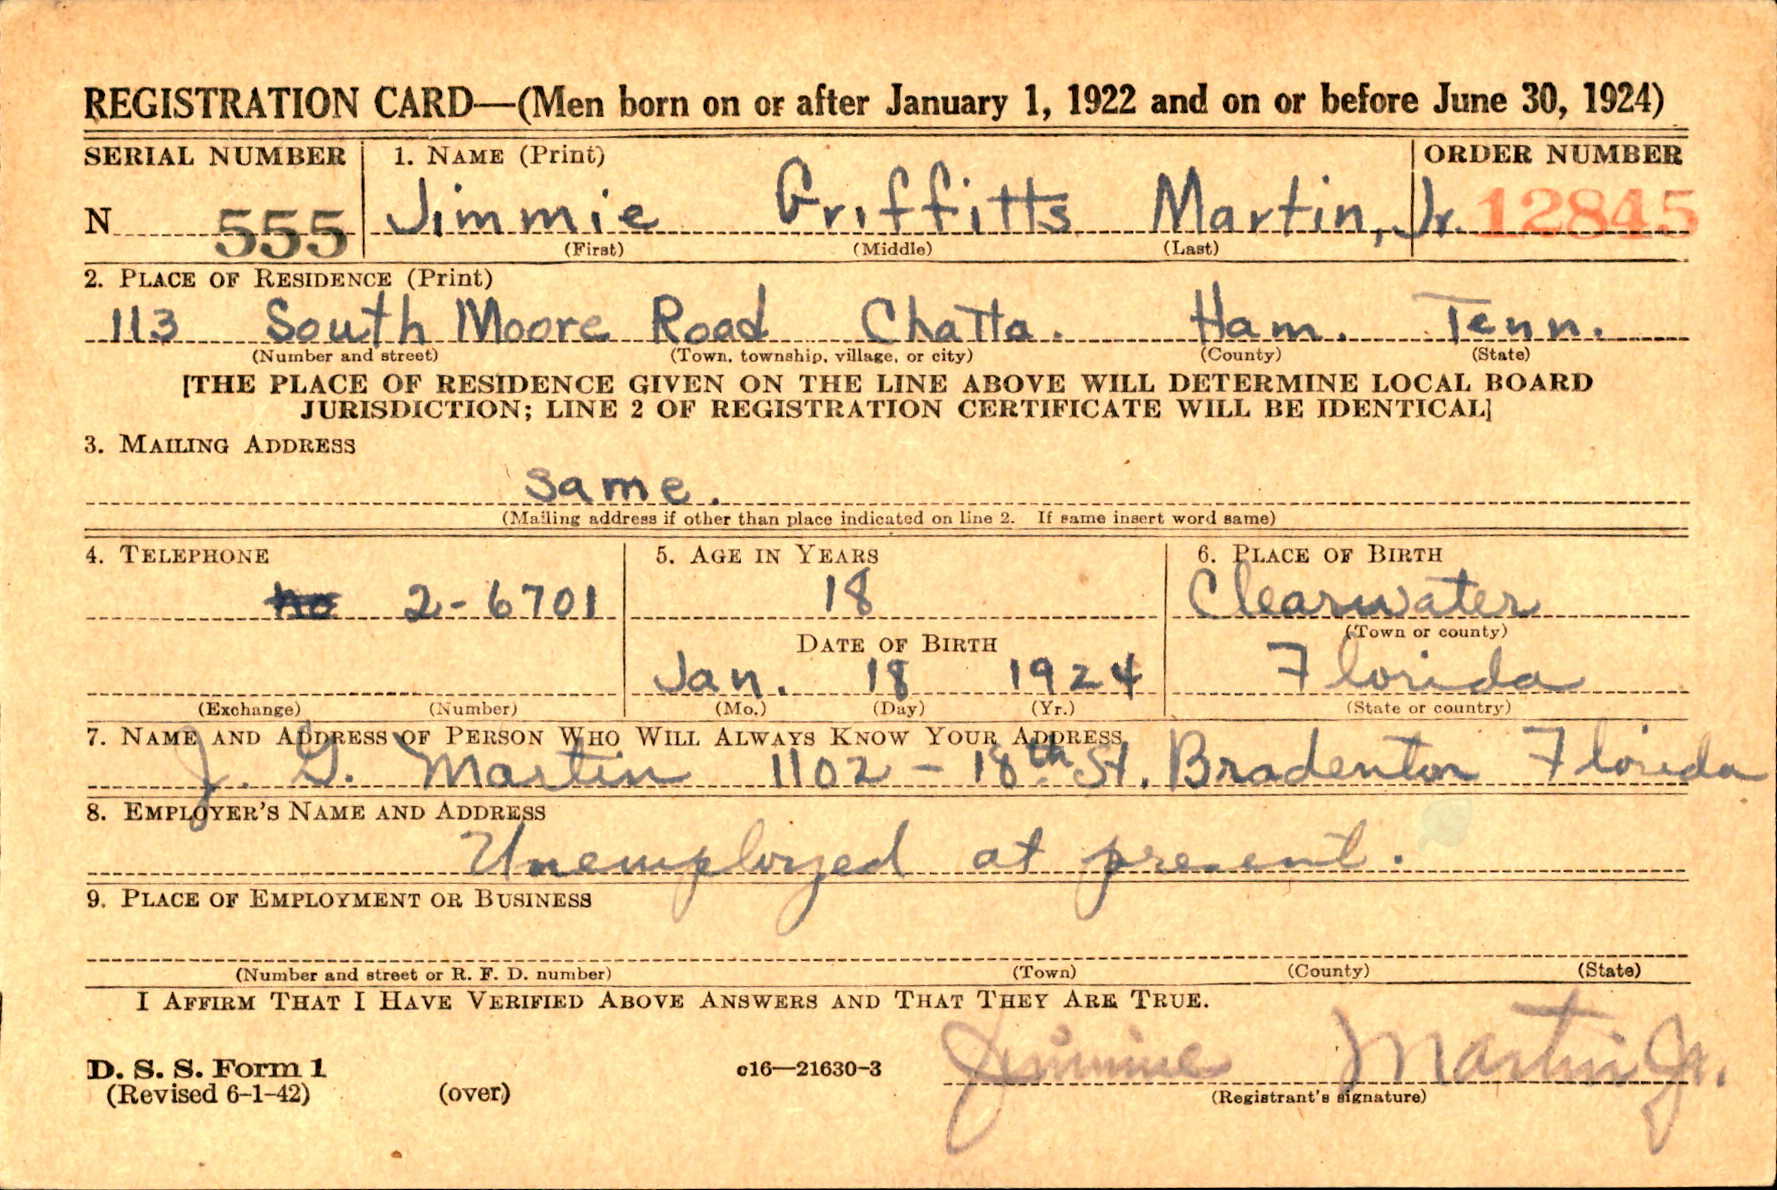 REGISTRATION CARD—(Men born on or after January 1, 1922 and on or before June 30, 1924)
SERIAL NUMBER 1. NAME (Print) ORDER NUMBER
N 555 Jimmie Griffitts Martin, Jr. 12845
(First) (Middle) (Last)
2. PLACE OF RESIDENCE (Print)
113 South Moore Road Chatta. Ham. Tenn.
(Number and street) (Town, township, village, or city) (County) (State)
[THE PLACE OF RESIDENCE GIVEN ON THE LINE ABOVE WILL DETERMINE LOCAL BOARD
JURISDICTION; LINE 2 OF REGISTRATION CERTIFICATE WILL BE IDENTICAL]
3. MAILING ADDRESS
same.
(Mailing address if other than place indicated on line 2. If same insert word same)
4. TELEPHONE 5. AGE IN YEARS 6. PLACE OF BIRTH
no 2-6701 18 Clearwater
(Town or county)
DATE OF BIRTH
Jan. 18 1924 Florida
(Exchange) (Number) (Mo.) (Day) (Yr.) (State or country)
7. NAME AND ADDRESS OF PERSON WHO WILL ALWAYS KNOW YOUR ADDRESS
J. G. Martin 1102 - 18th St. Bradenton Florida
8. EMPLOYER'S NAME AND ADDRESS
Unemployed at present.
9. PLACE OF EMPLOYMENT OR BUSINESS
(Number and street or R. F. D. number) (Town) (County) (State)
I AFFIRM THAT I HAVE VERIFIED ABOVE ANSWERS AND THAT THEY ARE TRUE.
D. S. S. Form 1 c16—21630-3 Jimmie Martin Jr.
(Revised 6-1-42) (over) (Registrant's signature)